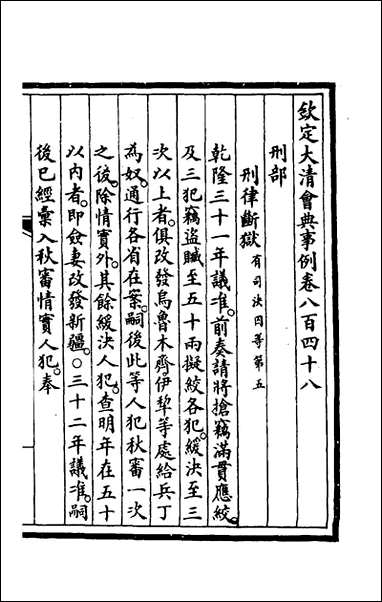 欽定大清會典事例卷八百四十八
刑部
刑律斷獄有司決囚等第五
乾隆三十一年議准。前奏請將搶竊滿貫應絞。
及三犯竊盜贓至五十兩擬絞各犯。緩決至三
次以上者。俱改發烏魯木齊。伊犂等處給兵丁
為奴。通行各省在案。嗣後此等人犯秋審一次
之後。除情實外。其餘緩決人犯。查明年在五十
以內者。即僉妻改發新疆。○三十二年議准。嗣
後已經彙入秋審情實人犯。奉